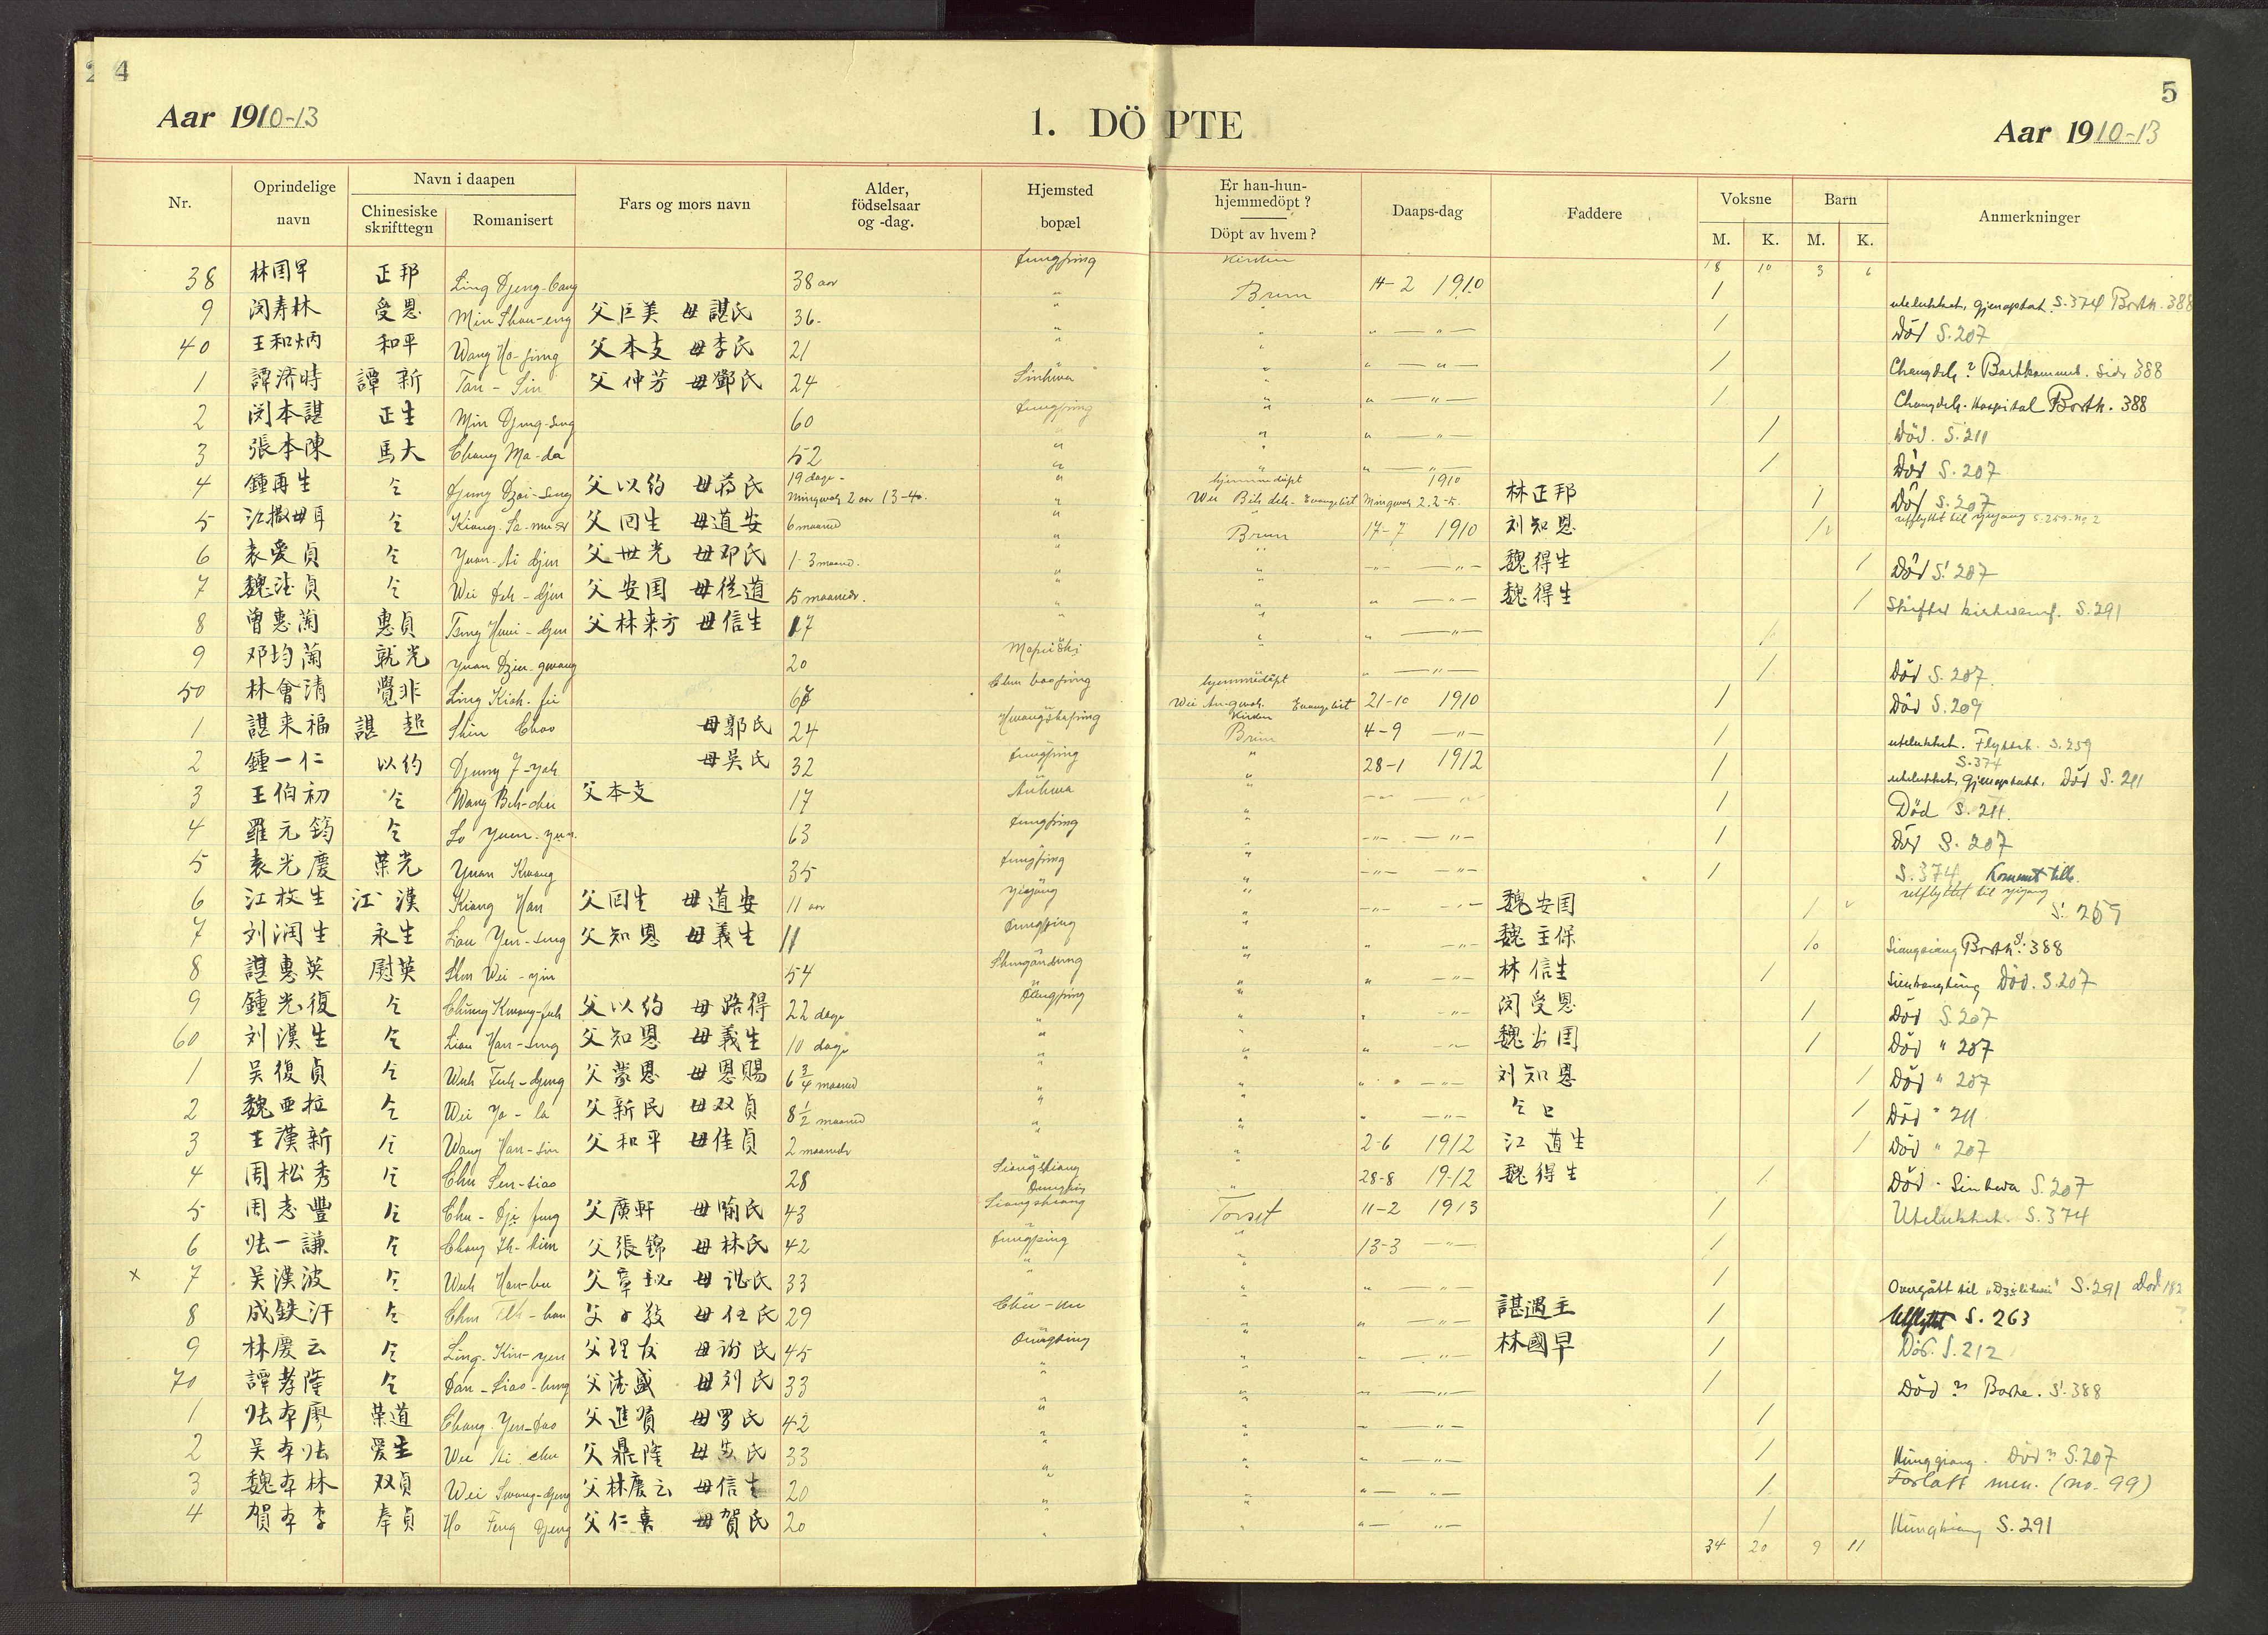 4
5
Aar 1910-13
1. DÖPTE
Aar 1910-13
Nr.
Oprindelige navn
Navn i daapen
Chinesiske skrifttegn
Romanisert
Fars og mors navn
Alder, födselsaar og -dag.
Hjemsted
bopæl
Er han-hun-hjemmedöpt?
Döpt av hvem?
Daaps-dag
Faddere
Voksne
M.
K.
Barn
M.
K.
Anmerkninger
18 10 3 6
38 林国早 正邦 Ling Djeng-bang 38 aar Tungping Kirken Brun 14-2 1910 1 utelukket, gjenoptat. S. 374 Bortk. 388
9 闵寿林 受恩 Min Shou-eng 父巨美 母諶氏 36 " " " — " — 1 Död S. 207
40 王和炳 和平 Wang Ho-ping 父本支 母李氏 21 " " " — " — 1 Changdeh? Bortkommet. Side 388
1 譚济時 譚新 Tan-Sin 父仲芳 母鄧氏 24 Sinhwa " " — " — 1 Changdeh. Hospital Bortk. 388
2 闵本諶 正生 Min Djeng-seng 60 Tungping " " — " — 1 Död. S. 211
3 張本陳 馬大 Chang Ma-da 52 " " " — " — 1 Död S. 207
4 鍾再生 仝 Djung Dzai-seng 父以約 母蒋氏 19 dage - Mingwoh 2 aar 13-4 " hjemmedöpt Wei Beh deh- Evangelist 1910 Mingwoh 2.2-5. 林正邦 1 Död S. 207
5 江撒母耳 仝 Kiang-Sa-mu-er 父回生 母道安 6 maaned " Brun 17-7 1910 刘知恩 1 utflyttet til yiyang S. 259. no 2
6 袁愛貞 仝 Yuan-Ai djen 父世光 母邓氏 1-3 maaned. " " — " — 魏得生 1 Död S. 207
7 魏德貞 仝 Wei Deh-djen 父安国 母從道 5 maaneder. " " " — " — 魏得生 1 Skiftet kirkesamf. S. 291
8 曾惠蘭 惠貞 Tseng Huei-djen 父林来方 母信生 17 " " " — " — 1
9 邓均蘭 就光 Yuan Dziu-gwang 20 " " — " — 1 Död S. 207.
50 林會清 覺非 Ling Kioh-fei hjemmedöpt Wei An-gwoh. Evangelist 21-10 1910 1 Död S. 209
1 諶来福 諶超 Shen Chao 母郭氏 24 Kirken Brun 4-9 — " — 1 utelukket. Flyttet. S. 259
2 鍾一仁 以約 Djung I-yoh 母吴氏 32 Tungping " 28-1 1912 1 S. 374 utelukket, gjenoptatt. Död S. 211
3 王伯初 仝 Wang Beh-chu 父本支 17 Anhwa " — " — 1 Död S. 211.
4 羅元筠 仝 Lo Yuen-yun 63 Tungping " — " — 1 Död S. 207
5 袁光慶 荣光 Yuan Kwang 35 Tungping " — " — 1 S. 374 Kommet tilb.
6 江枚生 江漢 Kiang Han 父回生 母道安 11 aar Yiyang " — " — 魏安国 1 utflyttet til yiyang S. 259
7 刘润生 永生 Liau Yen-seng 父知恩 母義生 11 Tungping " " — " — 魏主保 Siangsiang Bortk. S. 388
8 諶惠英 慰英 Shen Wei-yin 54 " " — " — 林信生 1 Död. S. 207
9 鍾光復 仝 Chung Kwang-fuh 父以約 母路得 22 dage Tungping " " — " — 闵受恩 1 Död S. 207
60 刘漢生 仝 Liau Han-seng 父知恩 母義生 10 dage " " " — " — 魏安国 1 Död " 207
1 吴復貞 仝 Wuh Fuh-djeng 父蒙恩 母恩賜 6 3/4 maaned " " — " — 刘知恩 1 Död " 207
2 魏亚拉 仝 Wei Ya-la 父新民 母双貞 8 1/2 maaned " " " — " — 仝上 1 Död " 211
3 王漢新 仝 Wang Han-sin 父和平 母佳貞 2 maaneder " " 2-6 1912 江道生 1 Död " 207
4 周松秀 仝 28 Siangshiang Tungping " 28-8 1912 魏得生 1 Död - Sinhwa S. 207
5 周志豐 仝 Chu-Dji fung 父廣軒 母喻氏 43 Siangshiang Torset 11-2 1913 1 Utelukket. S. 374
6 张一謙 仝 父張錦 母林氏 42 Tungping " 13-3 — " — 1
x 7 吴漢波 仝 33 " " " — " — 1 Overgått til "Dzilihwei" S. 291 död 182
8 成鉄汗 仝 母任氏 29 " " — " — 諶遇主 1 Utflyttet S. 263 ?
9 林慶云 仝 Ling-Kin-yen 父理友 母谢氏 45 Tungping " " — " — 林國早 1 Död. S. 212
70 譚孝隆 仝 Dan-Siao-lung 父德盛 母刘氏 33 " " " — " — 1 Död? Bortk. S. 388
1 张本廖 荣道 Chang-Yen-Dao 父進賢 母罗氏 42 " " " — " — 1
2 吴本张 爱生 父鼎隆 33 " " " — " — 1 Död? S. 207
3 魏本林 双貞 Wei Swang-djeng 父林慶云 母信生 20 " " " — " — 1 Forlatt men. (no. 99)
4 賀本李 奉貞 Ho Feng Djeng 父仁熹 母賀氏 20 " " " — " — 1 S. 291
34 20 9 11